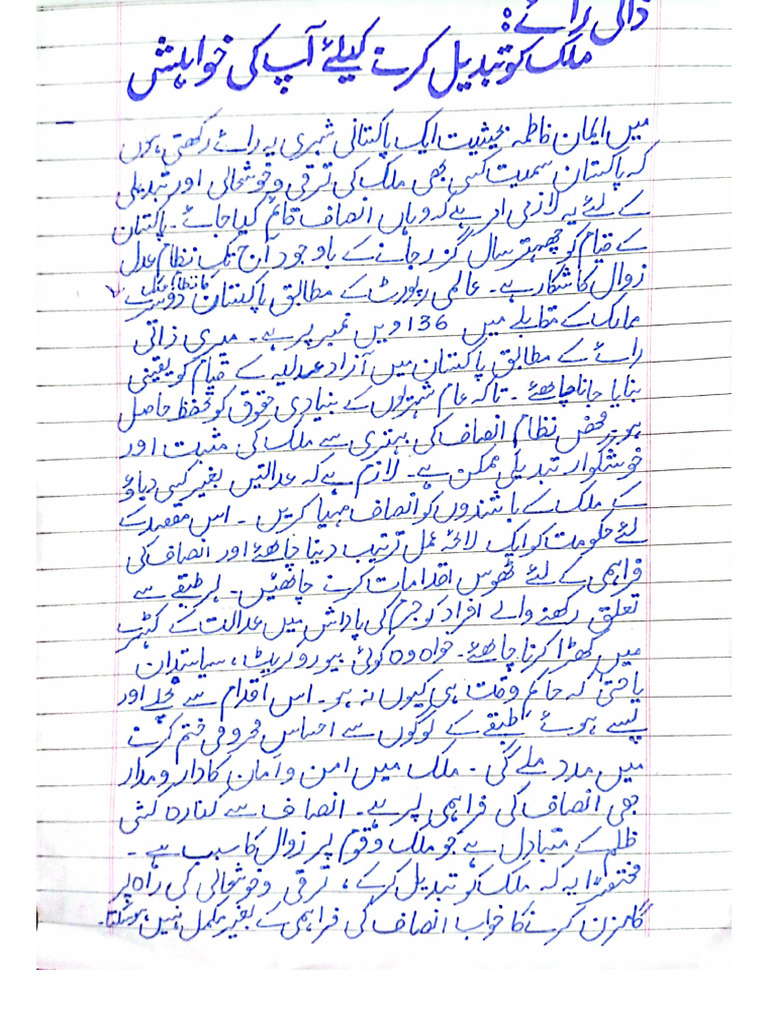 ذاتی رائے:
ملک کو تبدیل کرنے کیلئے آپ کی خواہش
میں ایمان فاطمہ بحیثیت ایک پاکستانی شہری یہ رائے رکھتی ہوں
کہ پاکستان سمیت کسی بھی ملک کی ترقی و خوشحالی اور تبدیلی
کے لئے یہ لازمی امر ہے کہ وہاں انصاف قائم کیا جائے۔ پاکستان
کے قیام کو چھہتر سال گزر جانے کے باوجود آج تک نظام عدل
زوال کا شکار ہے۔ عالمی رپورٹ کے مطابق پاکستان کا نظام عدل دوسرے
ممالک کے مقابلے میں 136 ویں نمبر پر ہے۔ میری ذاتی
رائے کے مطابق پاکستان میں آزاد عدلیہ کے قیام کو یقینی
بنایا جانا چاھئے۔ تاکہ عام شہریوں کے بنیادی حقوق کو تحفظ حاصل
ہو۔ محض نظام انصاف کی بہتری سے ملک کی مثبت اور
خوشگوار تبدیلی ممکن ہے۔ لازم ہے کہ عدالتیں بغیر کسی دباؤ
کے ملک کے باشندوں کو انصاف مہیا کریں۔ اس مقصد کے
لئے حکومت کو ایک لائحہ عمل ترتیب دینا چاھئے اور انصاف کی
فراہمی کے لئے ٹھوس اقدامات کرنے چاھئیں۔ ہر طبقے سے
تعلق رکھنے والے افراد کو جرم کی پاداش میں عدالت کے کٹہرے
میں کھڑا کرنا چاھئے۔ خواہ وہ کوئی بیوروکریٹ، سیاستدان
یا حتیٰ کہ حاکم وقت ہی کیوں نہ ہو۔ اس اقدام سے نچلے اور
پسے ہوئے طبقے کے لوگوں سے احساس محرومی ختم کرنے
میں مدد ملے گی۔ ملک میں امن و امان کا دارومدار
بھی انصاف کی فراہمی پر ہے۔ انصاف سے کنارہ کشی
ظلم کے متبادل ہے جو ملک و قوم پر زوال کا سبب ہے۔
مختصراً یہ کہ ملک کو تبدیل کرکے، ترقی و خوشحالی کی راہ پر
گامزن کرنے کا خواب انصاف کی فراہمی کے بغیر مکمل نہیں ہو سکتا۔